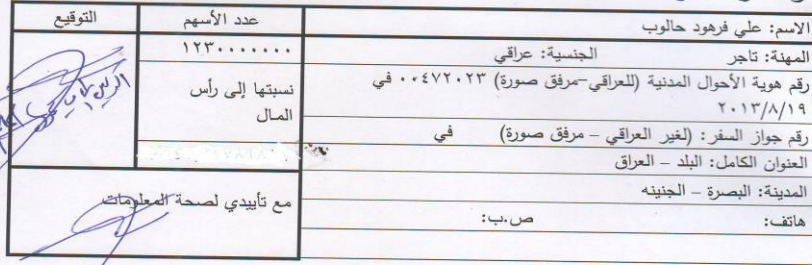 الاسم: علي فرهود حالوب
المهنة: تاجر الجنسية: عراقي
رقم هوية الأحوال المدنية (للعراقي-مرفق صورة) ٠٠٤٧٢٠٢٣ في
٢٠١٣/٨/١٩
رقم جواز السفر: (لغير العراقي - مرفق صورة) في
العنوان الكامل: البلد - العراق
المدينة: البصرة - الجنينه
هاتف: ص.ب:
عدد الأسهم
١٢٣٠٠٠٠٠٠٠
نسبتها إلى رأس
المال
التوقيع
مع تأييدي لصحة المعلومات